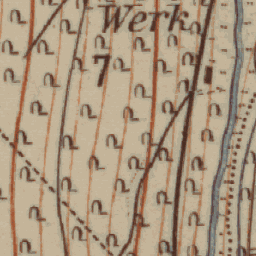 Werk
7